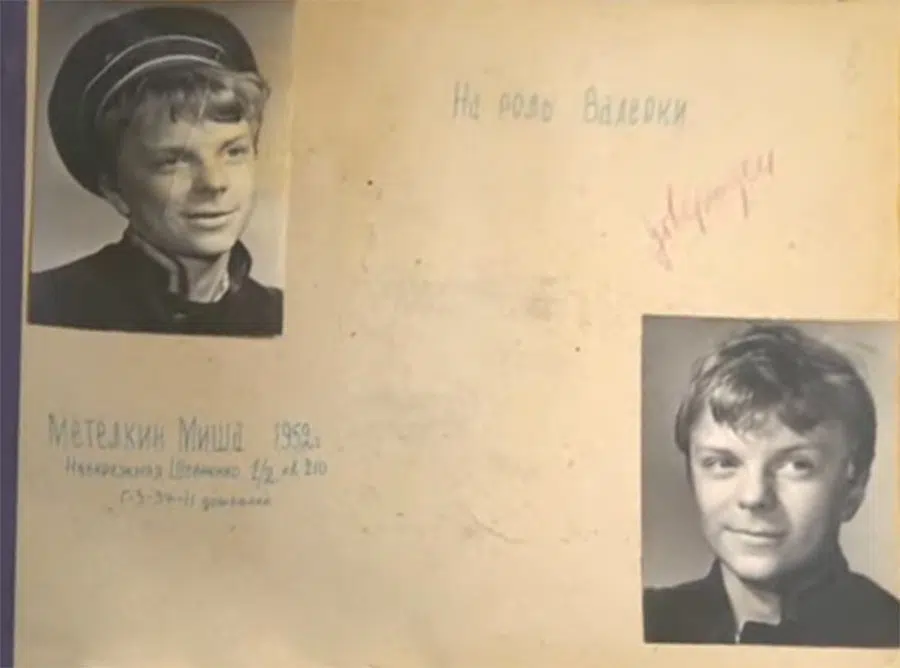 На роль Валерки
утвержден
Метелкин Миша 1952г
Набережная Шевченко 1/2 кв. 210
Г-3-34-11 домашний